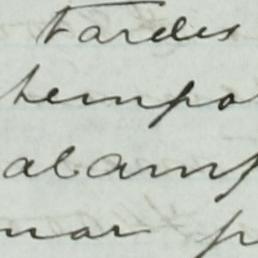 tardes
tempo
alamp
nar p